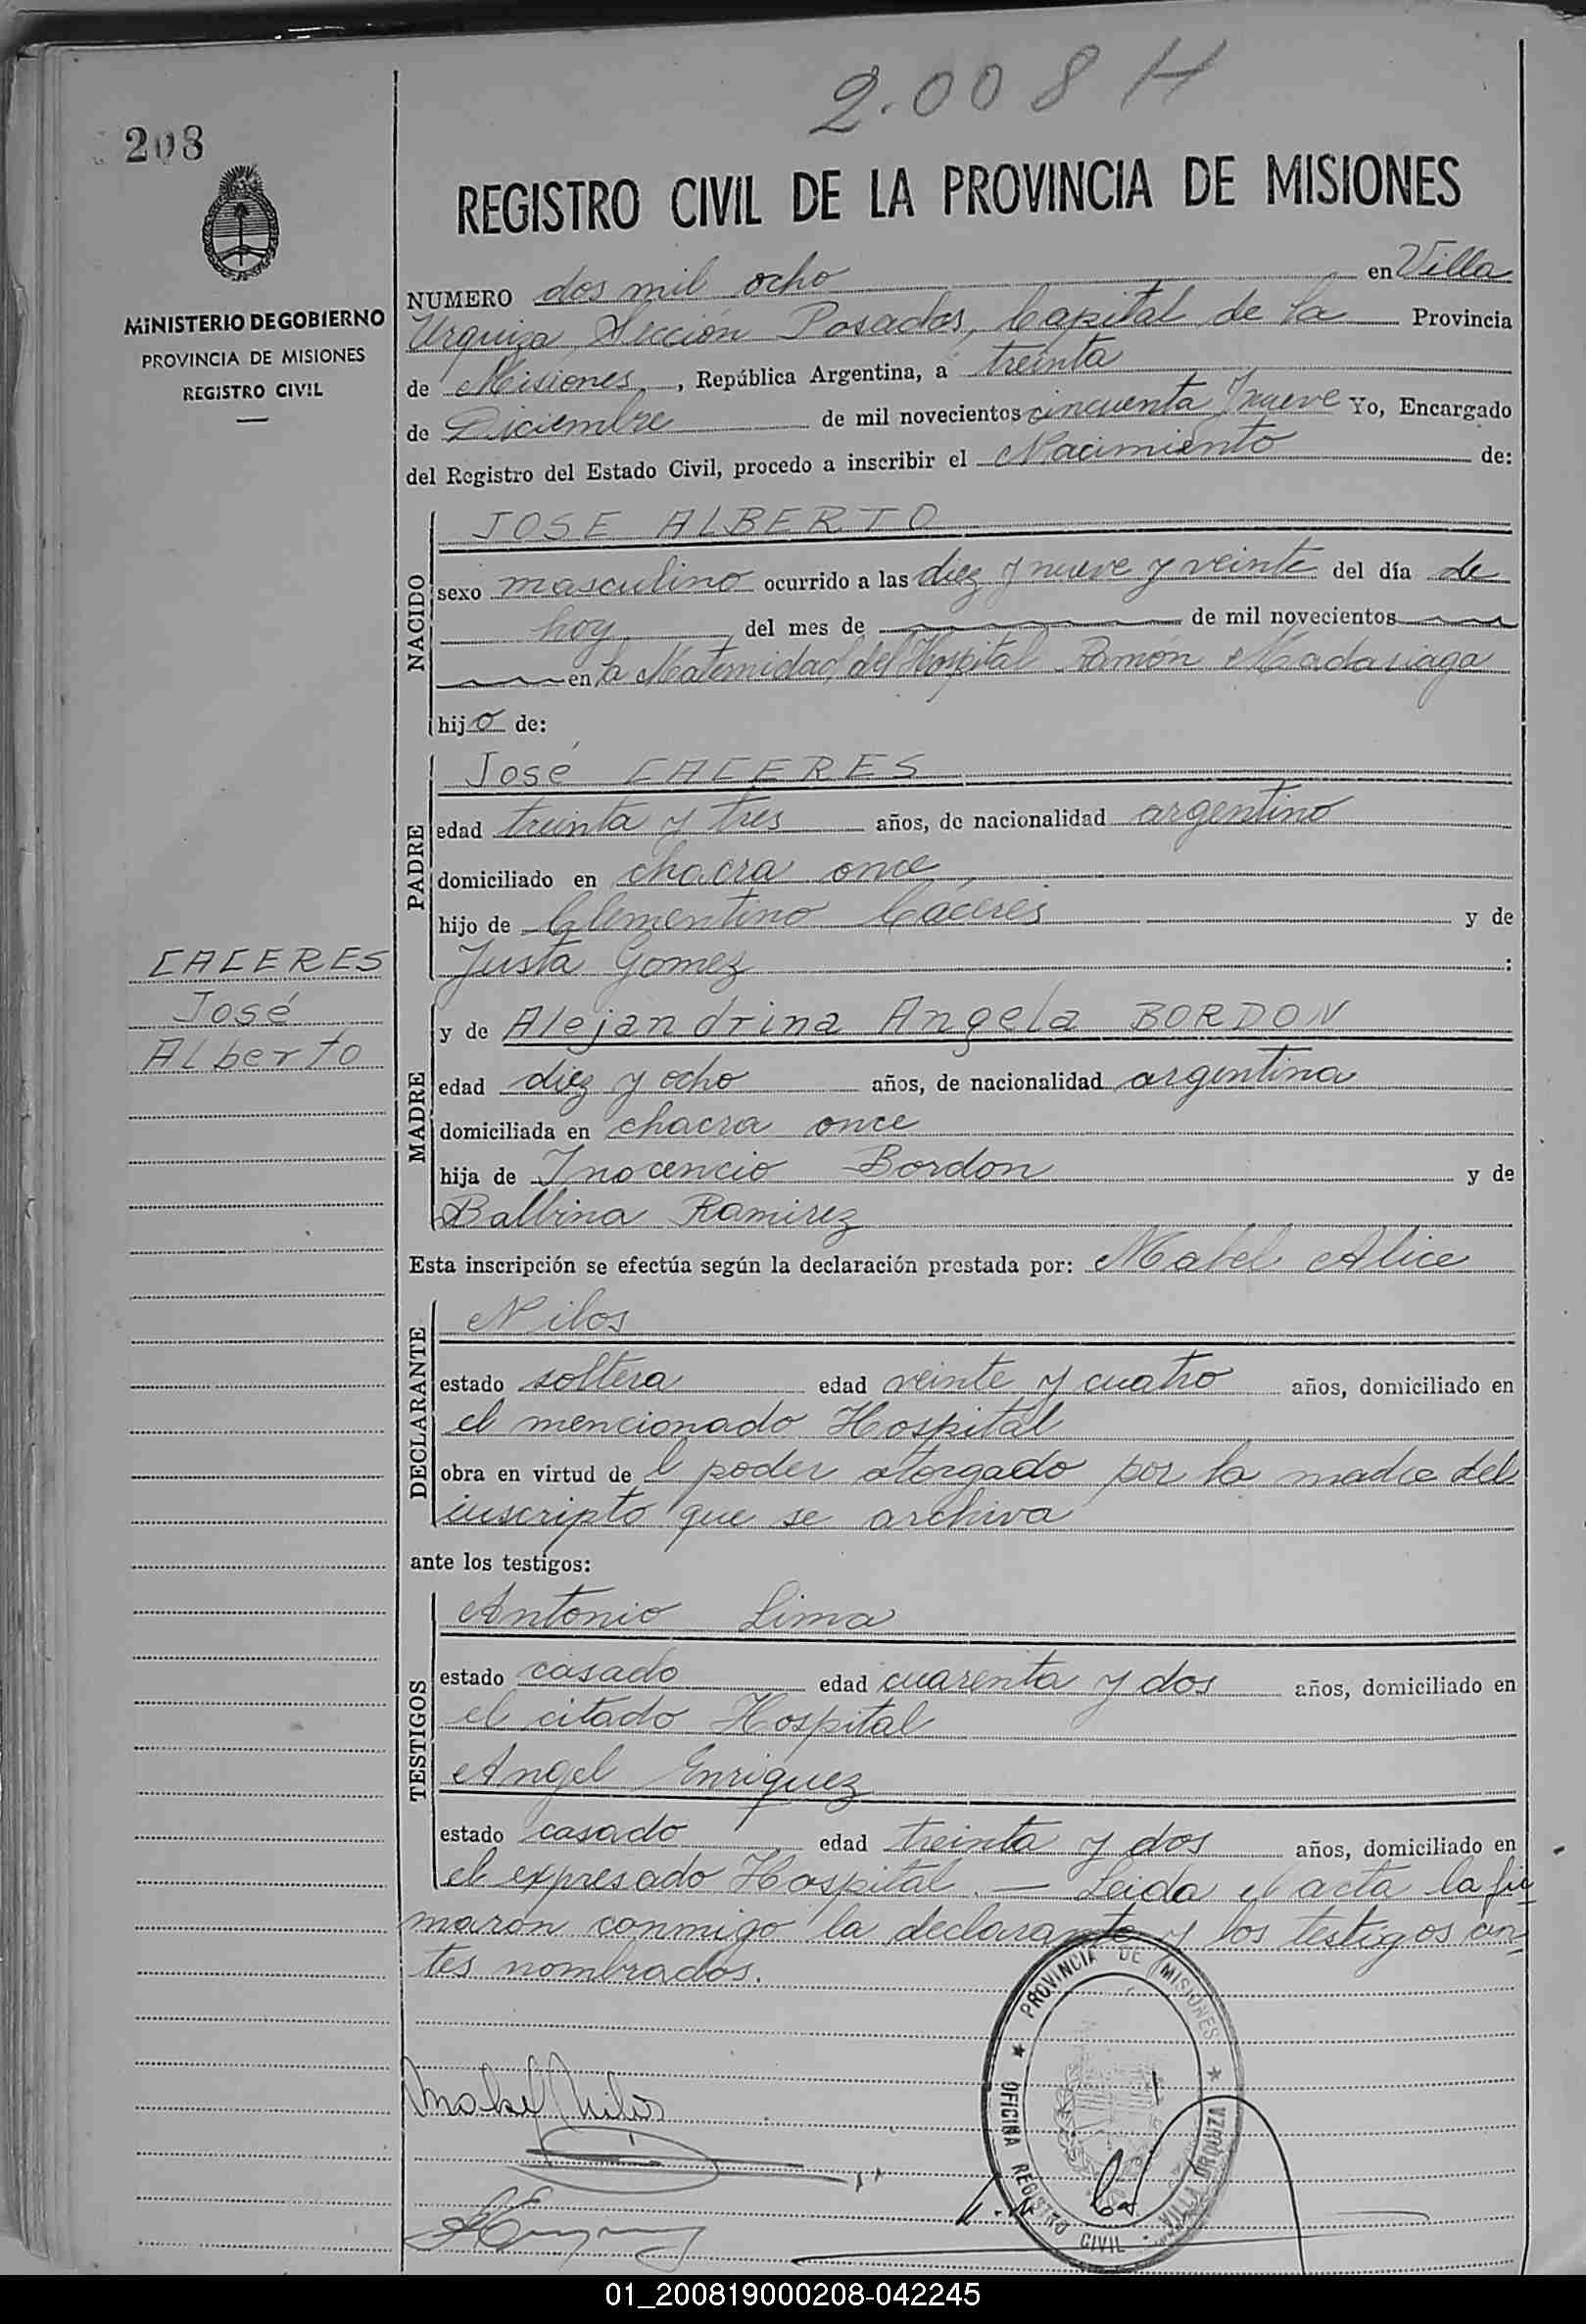 2.008 H
208
REGISTRO CIVIL DE LA PROVINCIA DE MISIONES
MINISTERIO DE GOBIERNO
PROVINCIA DE MISIONES
REGISTRO CIVIL
NUMERO dos mil ocho en Villa
Urquiza Sección Posadas, Capital de la Provincia
de Misiones, , República Argentina, a treinta
de Diciembre de mil novecientos cincuenta y nueve Yo, Encargado
del Registro del Estado Civil, procedo a inscribir el Nacimiento de:
NACIDO
JOSE ALBERTO
sexo masculino ocurrido a las diez y nueve y veinte del día de
hoy del mes de de mil novecientos
en la Maternidad del Hospital Ramón Madariaga
hijo de:
PADRE
José CACERES
edad treinta y tres años, de nacionalidad argentino
domiciliado en chacra once
hijo de Clementino Cáceres y de
Justa Gomez :
CACERES
José
Alberto
MADRE
y de Alejandrina Angela BORDON
edad diez y ocho años, de nacionalidad argentina
domiciliada en chacra once
hija de Inocencio Bordon y de
Balbina Ramirez
Esta inscripción se efectúa según la declaración prestada por: Mabel Alice
DECLARANTE
Nilos
estado soltera edad veinte y cuatro años, domiciliado en
el mencionado Hospital
obra en virtud de l poder otorgado por la madre del
inscripto que se archiva
ante los testigos:
TESTIGOS
Antonio Lima
estado casado edad cuarenta y dos años, domiciliado en
el citado Hospital
Angel Enriquez
estado casado edad treinta y dos años, domiciliado en
el expresado Hospital. — Leida el acta la fir
maron conmigo la declarante y los testigos an
tes nombrados.
PROVINCIA DE MISIONES
OFICINA REGISTRO CIVIL - VILLA URQUIZA
Mabel Nilos
01_200819000208-042245